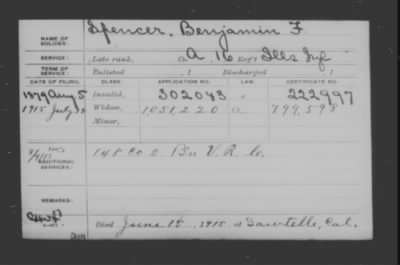 NAME OF SOLDIER: Spencer, Benjamin F.
SERVICE: Late rank, Co. A, 16 Reg't Ills Inf
TERM OF SERVICE: Enlisted , 1 Discharged , 1
DATE OF FILING. CLASS. APPLICATION NO. LAW. CERTIFICATE NO.
1879 Aug 5 Invalid, 302043 " 222997
1915 July Widow, 1,051,220 a 799,598
Minor,
ADDITIONAL SERVICES: 148 Co 2 Bn V. R. C.
REMARKS:
Died June 15, 1915, at Sawtelle, Cal.